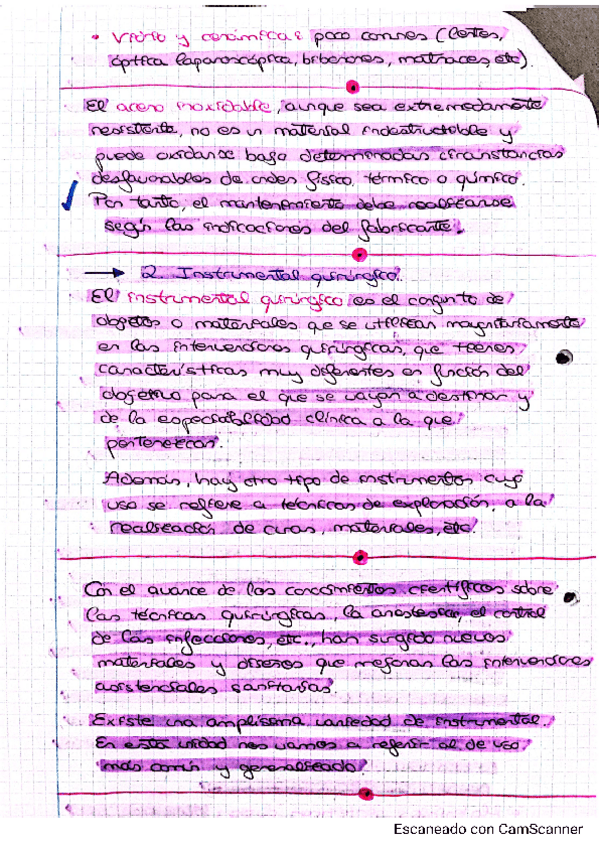 • Vidrio y cerámica: poco comunes (lentes,
óptica laparoscópica, biberones, matraces, etc).
El acero inoxidable, aunque sea extremadamente
resistente, no es un material indestructible y
puede oxidarse bajo determinadas circunstancias
desfavorables de orden físico, térmico o químico.
Por tanto, el mantenimiento debe realizarse
según las indicaciones del fabricante.
→ 2. Instrumental quirúrgico.
El instrumental quirúrgico es el conjunto de
objetos o materiales que se utilizan mayoritariamente
en las intervenciones quirúrgicas, que tienen
características muy diferentes en función del
objetivo para el que se vayan a destinar y
de la especialidad clínica a la que
pertenezcan.
Además, hay otro tipo de instrumentos cuyo
uso se refiere a técnicas de exploración, a la
realización de curas, materiales, etc.
Con el avance de los conocimientos científicos sobre
las técnicas quirúrgicas, la anestesia, el control
de las infecciones, etc., han surgido nuevos
materiales y diseños que mejoran las intervenciones
asistenciales sanitarias.
Existe una amplísima variedad de instrumental.
En esta unidad nos vamos a referir al de uso
más común y generalizado.
Escaneado con CamScanner